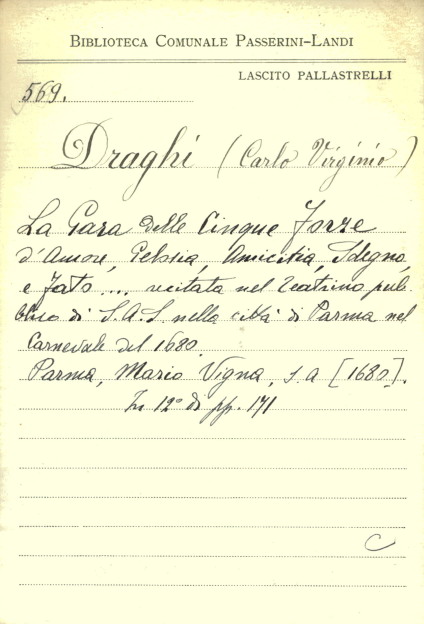 BIBLIOTECA COMUNALE PASSERINI-LANDI
LASCITO PALLASTRELLI
569.
Draghi (Carlo Virginio)
La Gara delle Cinque Forze
d'Amore, Gelosia, Amicitia, Sdegno,
e Fato... recitata nel Teatrino pub-
blico di S.A.S. nella città di Parma nel
Carnevale del 1680.
Parma, Mario Vigna, s.a [1680].
In 12° di pp. 171
C